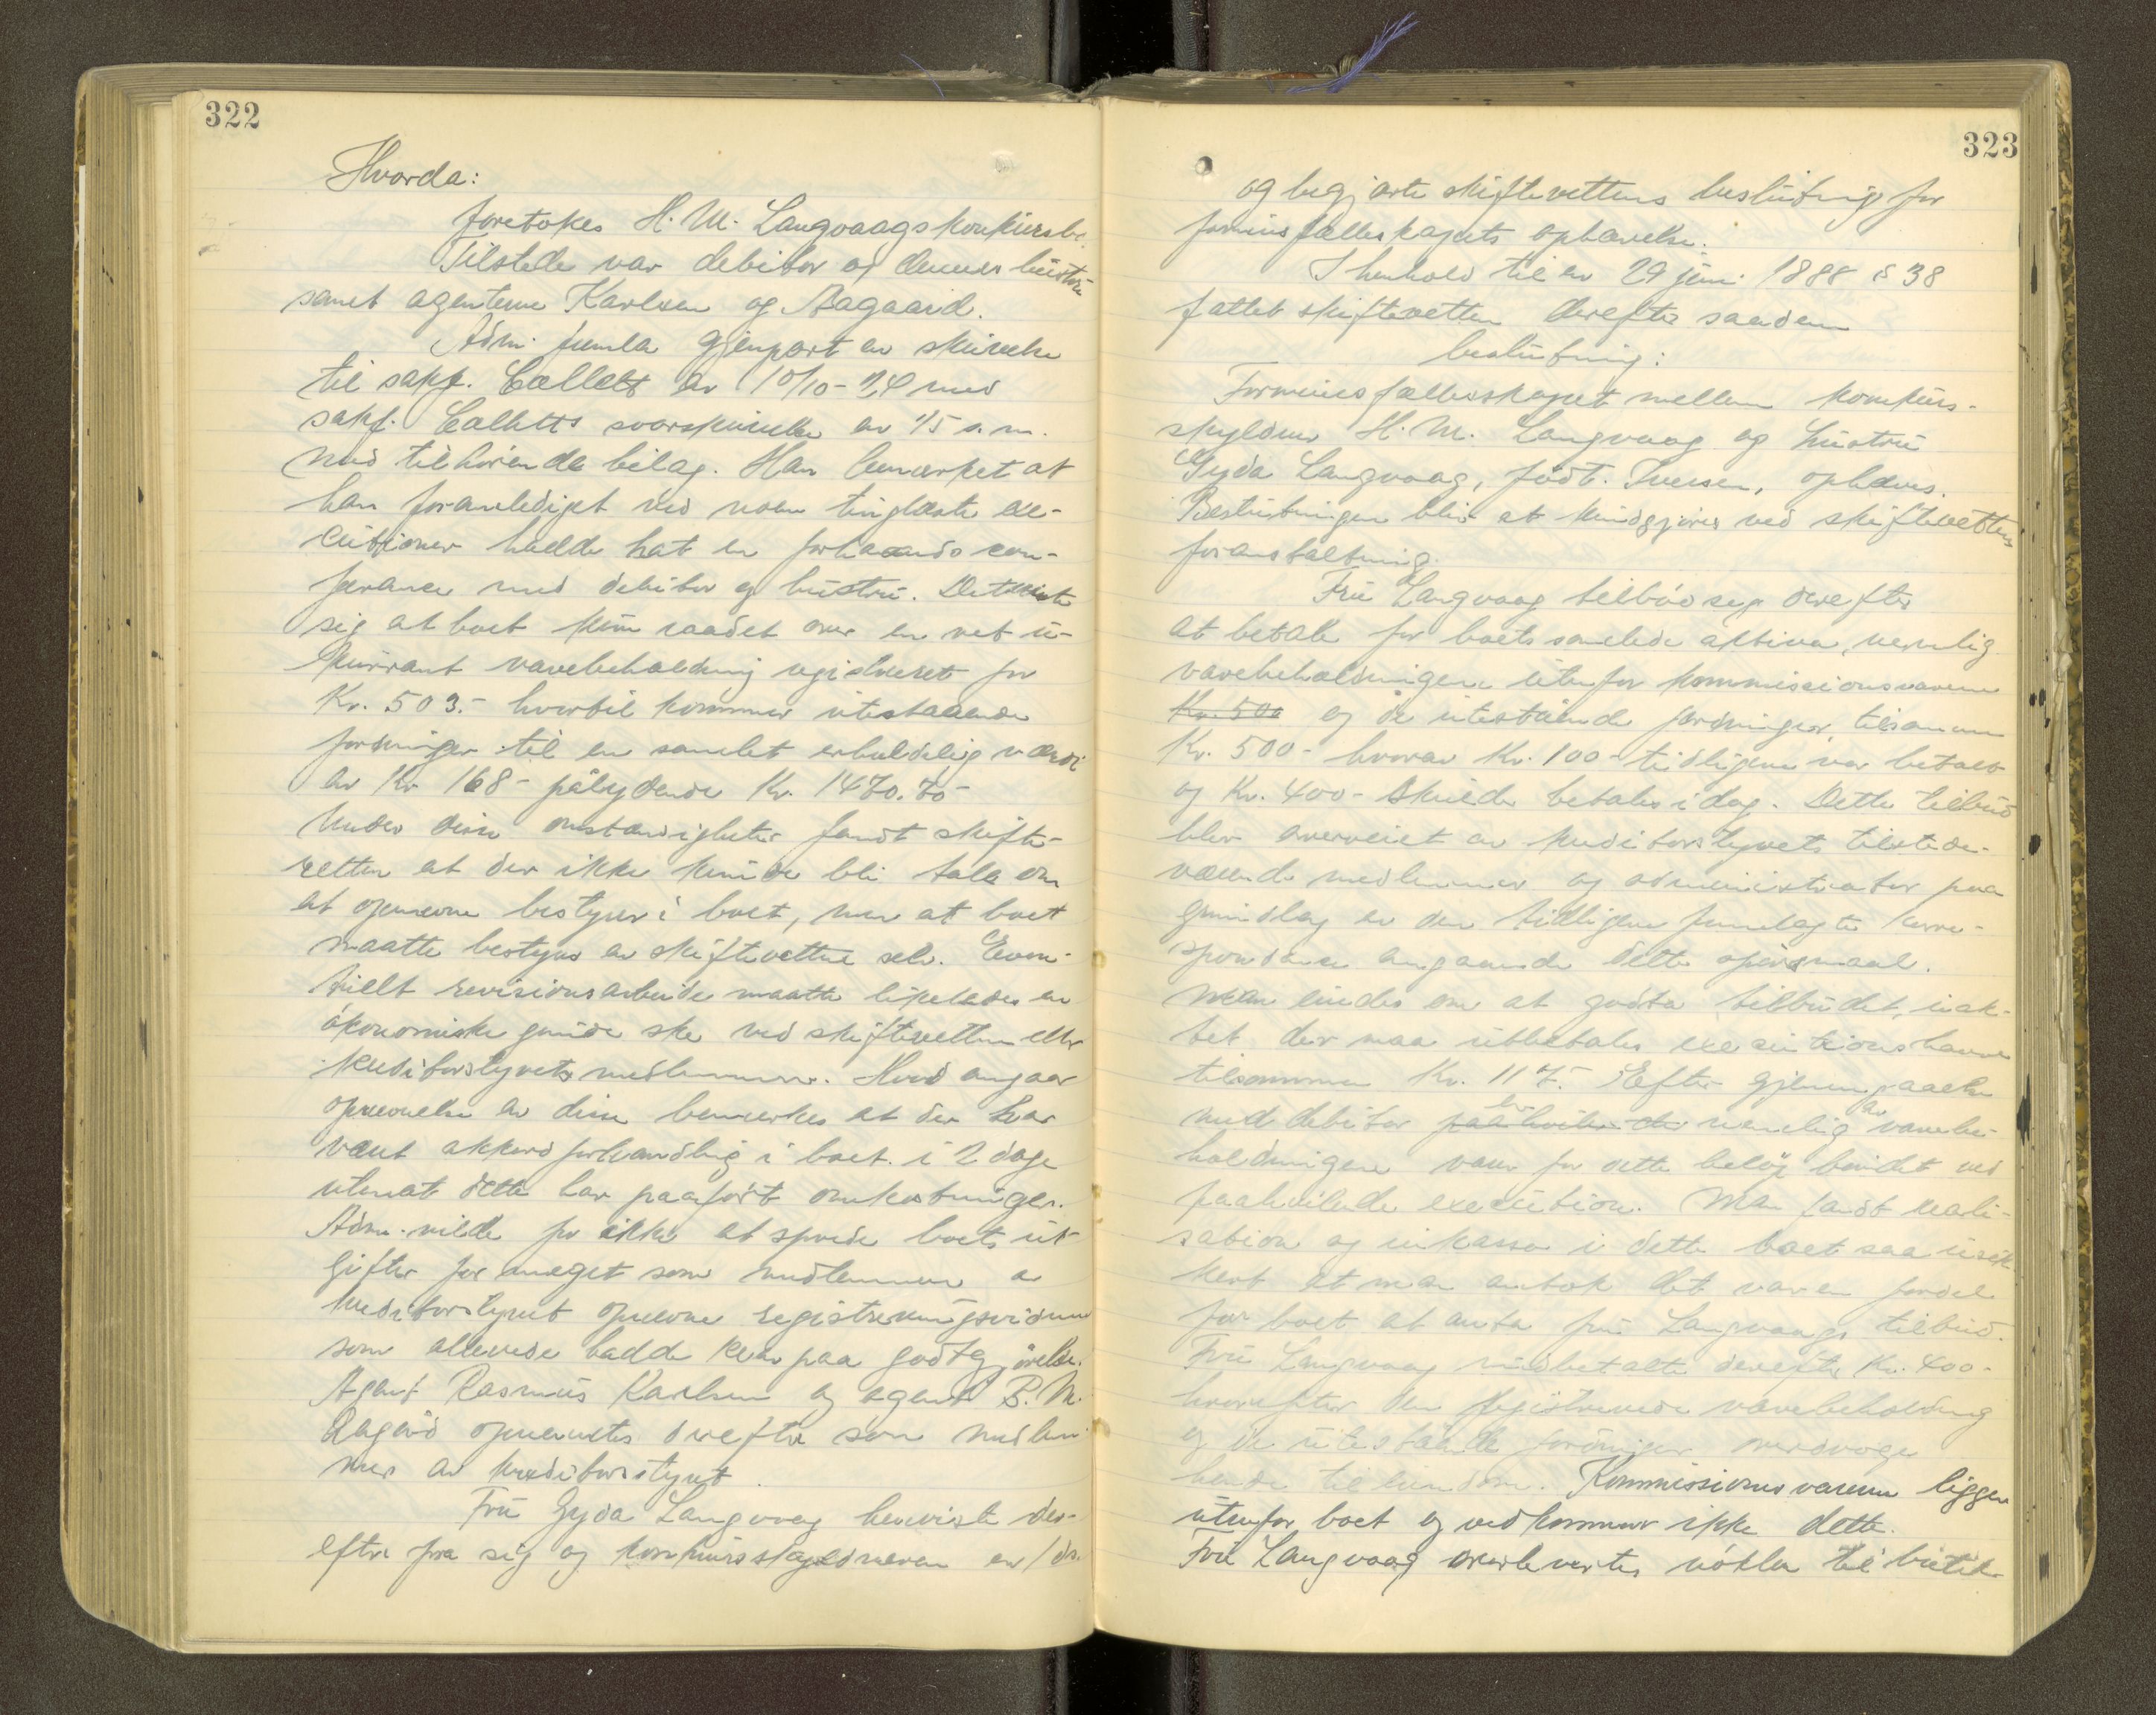 322
Hvorda:
foretokes H. M. Langvaags konkursbo.
Tilstede var debitor og dennes hustru
samt agenterne Karlsen og Aagaard.
Adm. fremla gjenpart av skrivelse
til sakf. Colletts av 10/10-24 med
sakf. Colletts svarskrivelse av 15 s.m.
med tilhørende bilag. Han bemerket at
han foranlediget ved noen tinglæste exe-
cutioner hadde hat en forhaands con-
ferance med debitor og hustru. Det viste
sig at boet kun raadet over en net u-
kurrant varebeholdning registreret for
Kr. 503.- hvortil kommer utestaaende
fordringer til en samlet erholdelig værdi
av Kr 168- pålydende Kr. 1470.70-
Under disse omstændigheter fandt skifte-
retten at der ikke kunde bli tale om
at opnevne bestyrer i boet, men at boet
maatte bestyres av skifteretten selv. Even-
tuelt revisionsarbeide maatte likeledes av
økonomiske grunde ske ved skifteretten eller
kreditorstyrets medlemmer. Hvad angaar
opnevnelse av disse bemerkes at der har
vært akkordforhandling i boet i 2 dage
uten at dette har paaført omkostninger.
Adm. vilde for ikke at sprede boets ut-
gifter for meget som medlemmer av
kreditorstyret opnevne registreringsvidnene
som allerede hadde krav paa godtgjørelse.
Agent Rasmus Karlsen og agent B. M.
Aagård opnevntes derefter som medlem-
mer av kreditorstyret.
Fru Gyda Langvaag henviste der-
efter fra sig og konkursskyldneren
323
og begjærte skifterettens beslutning for
formuesfællesskapets ophævelse.
I henhold til lov 29 juni 1888 § 38
fattet skifteretten derefter saadan
beslutning:
Formuesfællesskapet mellem konkurs-
skyldner H. M. Langvaag og hustru
Gyda Langvaag, født. Iversen, ophæves.
Beslutningen blir at kundgjøres ved skifterettens
foranstaltning.
Fru Langvaag tilbød sig derefter
at betale for boets samlede aktiva, nemlig
varebeholdningen utenfor kommissionsvarene
Kr. 500 og de utestående fordringer, tilsammen
Kr. 500- hvorav Kr. 100- tidligere var betalt
og Kr. 400- skulde betales i dag. Dette tilbud
blev overveiet av kreditorstyrets tilstede-
værende medlemmer og administrator paa
grundlag av den tidligere fremlagte korre-
spondance angaaende dette spørsmaal.
Man enedes om at godta tilbudet, uak-
tet der maa utbetales executionshavere
tilsammen Kr. 117.- Efter gjennemgaaelse
med debitor paahvilende er nemlig av varebe-
holdningen varer for dette beløp bundet ved
paahvilende execution. Man fandt reali-
sation og inkasso i dette boet saa usik-
kert at man antok det var en fordel
for boet at anta fru Langvaags tilbud.
Fru Langvaag indbetalte derefter Kr. 400-
hvorefter den registrerede varebeholdning
og de utestående fordringer overdroges
hende til eiendom. Kommissionsvarene ligger
utenfor boet og vedkommer ikke dette.
Fru Langvaag overlevertes nøklen til butik-